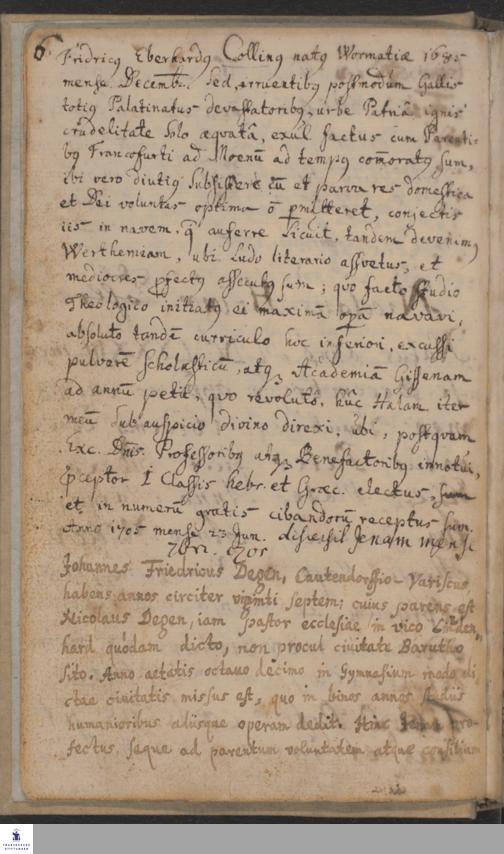 6.
Fridricꝰ Eberhardꝰ Collinꝰ natꝰ Wormatiæ 1685
mense Decembr. Sed, irruentibꝰ postmodum Gallis
totiꝰ Palatinatus devastatoribꝰ, urbe Patriâ ignis
crudelitate solo æquatâ, exul factus cum Parenti-
bꝰ Francofurti ad Moenū ad tempꝰ com̄oratꝰ sum,
ibi vero diutiꝰ subsistere cū et parva res domestica
et Dei voluntas optima ō permitteret, conjectis
iis in navem, q̄ auferre licuit, tandem devenimꝰ
Werthemiam, ubi Ludo literario assvetus, et
mediocres profectꝰ assecutꝰ sum; quo facto studio
Theologico initiatꝰ ei maximā operā navavi,
absoluto tandē curriculo hoc inferiori, excussi
pulverē Scholasticū, atq; Academiā Gissenam
ad annū petii, quo revoluto, hûc Halam iter
meū sub auspicio divino direxi, ubi, postquam
Exc. Dnīs. Professoribꝰ atq; Benefactoribꝰ innotui,
præceptor I Classis hebr. et Græc. electus, sum
et in numerū gratis cibandorū receptus sum.
Anno 1705 mense 23 Jun. discessit Jenam mense
7br. 1705
Johannes Friedricus Degen, Cautendorffio-Variscus
habens annos circiter viginti septem; cuius parens est
Nicolaus Degen, iam pastor ecclesiae in vico Linden,
hard quodam dicto, non procul civitate Barutho
sito. Anno aetatis octavo decimo in Gymnasium modo di-
ctae civitatis missus est, quo in binos annos studiis
humanioribus aliisque operam dedit. Hinc Jenam pro-
fectus, seque ad parentum voluntatem atque consilium
FRANCKESCHE
STIFTUNGEN